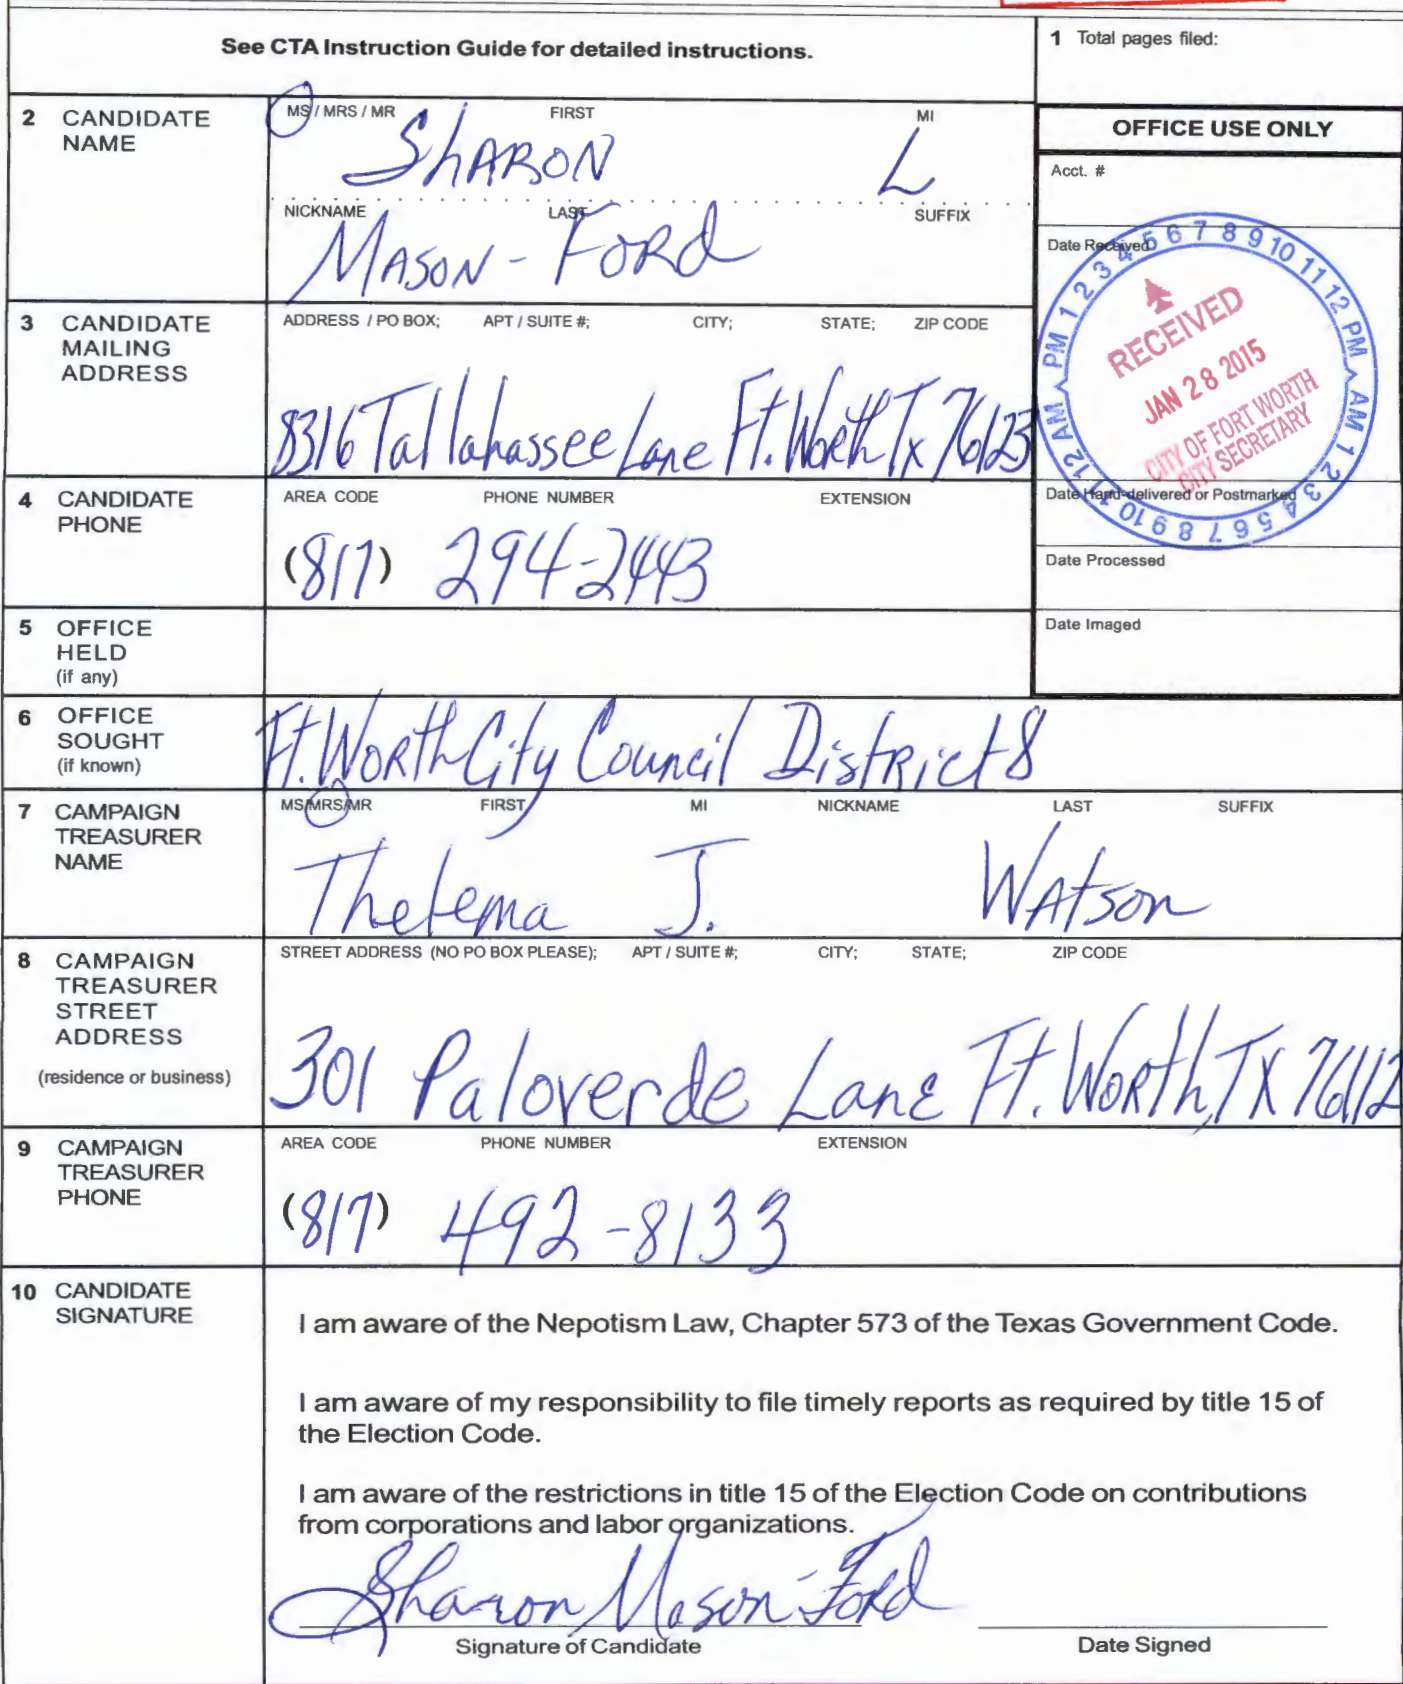 See CTA Instruction Guide for detailed instructions.
1 Total pages filed:
2 CANDIDATE NAME
MS / MRS / MR FIRST MI
SHARON L
NICKNAME LAST SUFFIX
MASON - FORd
OFFICE USE ONLY
Acct. #
Date Received
PM 1 2 3 4 5 6 7 8 9 10 11 12 PM AM 1 2 3 4 5 6 7 8 9 10 11 12 AM
RECEIVED
JAN 28 2015
CITY OF FORT WORTH
CITY SECRETARY
Date Hand-delivered or Postmarked
Date Processed
Date Imaged
3 CANDIDATE MAILING ADDRESS
ADDRESS / PO BOX; APT / SUITE #; CITY; STATE; ZIP CODE
8316 Tallahassee Lane Ft. Worth Tx 76123
4 CANDIDATE PHONE
AREA CODE PHONE NUMBER EXTENSION
(817) 294-2443
5 OFFICE HELD (if any)
6 OFFICE SOUGHT (if known)
Ft. Worth City Council District 8
7 CAMPAIGN TREASURER NAME
MS/MRS/MR FIRST MI NICKNAME LAST SUFFIX
Thelema J. Watson
8 CAMPAIGN TREASURER STREET ADDRESS (residence or business)
STREET ADDRESS (NO PO BOX PLEASE); APT / SUITE #; CITY; STATE; ZIP CODE
301 Paloverde Lane Ft. Worth, TX 76112
9 CAMPAIGN TREASURER PHONE
AREA CODE PHONE NUMBER EXTENSION
(817) 492-8133
10 CANDIDATE SIGNATURE
I am aware of the Nepotism Law, Chapter 573 of the Texas Government Code.
I am aware of my responsibility to file timely reports as required by title 15 of
the Election Code.
I am aware of the restrictions in title 15 of the Election Code on contributions
from corporations and labor organizations.
Sharon Mason-Ford
Signature of Candidate
Date Signed